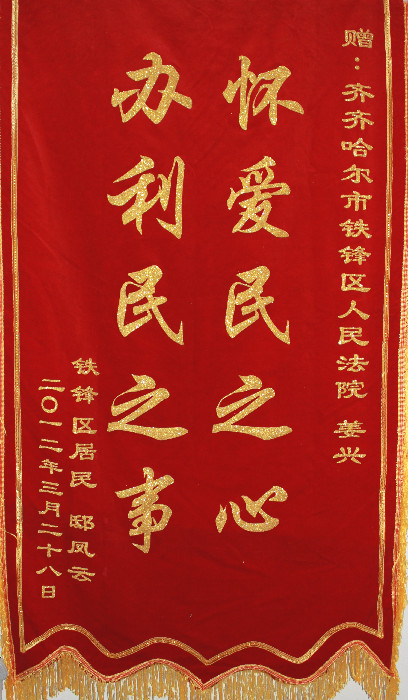 赠：齐齐哈尔市铁锋区人民法院 姜兴
怀爱民之心
办利民之事
铁锋区居民 邸凤云
二〇一二年三月二十八日